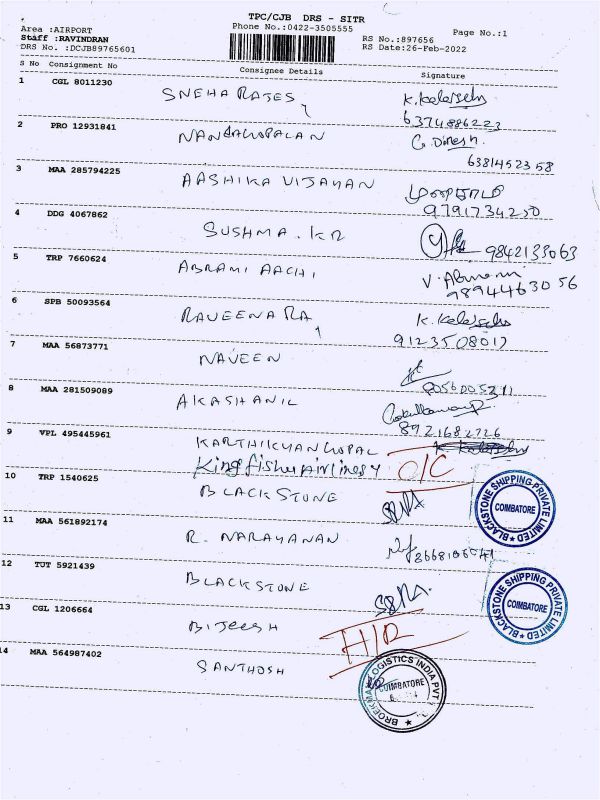 TPC/CJB DRS - SITR
Phone No.:0422-3505555
Area :AIRPORT
Staff :RAVINDRAN
DRS No. :DCJB89765601
RS No.:897656
RS Date:26-Feb-2022
Page No.:1
S No Consignment No Consignee Details Signature
1 CGL 8011230 SNEHA RAJES
6374886223
2 PRO 12931841 NANDAGOPALAN G. Dinesh
6381452358
3 MAA 285794225 AASHIKA VIJAYAN
9791734250
4 DDG 4067862 SUSHMA . KR 9842133063
5 TRP 7660624 ABRAMI AACHI V. Abirami
9894463056
6 SPB 50093564 RAVEENA RA
9123508017
7 MAA 56873771 NAVEEN
8 MAA 281509089 AKASHANIL
8921682726
9 VPL 495445961 KARTHIKYANGOPAL
Kingfisher Airlines O/C
10 TRP 1540625 BLACKSTONE
BLACKSTONE SHIPPING PRIVATE LIMITED
COIMBATORE
11 MAA 561892174 R. NARAYANAN
12 TUT 5921439 BLACKSTONE
BLACKSTONE SHIPPING PRIVATE LIMITED
COIMBATORE
13 CGL 1206664 BIJEESH
14 MAA 564987402 SANTHOSH
BROEKMAN LOGISTICS INDIA PVT
COIMBATORE